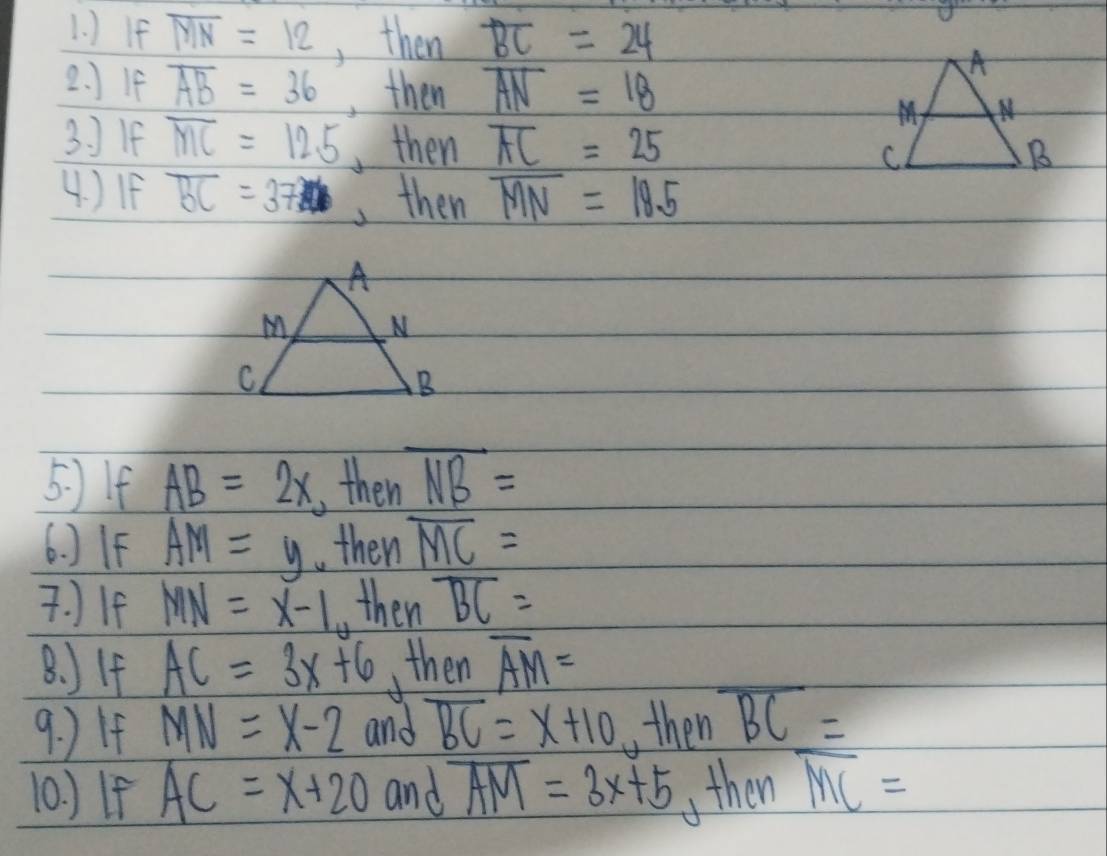 1.) If MN = 12, then BC = 24
2.) If AB = 36, then AN = 18
3.) If MC = 12.5, then AC = 25
4.) If BC = 37, then MN = 18.5
A
M N
C B
A
M N
C B
5.) If AB = 2x, then NB =
6.) If AM = y, then MC =
7.) If MN = x-1, then BC =
8.) If AC = 3x+6, then AM =
9.) If MN = x-2 and BC = x+10, then BC =
10.) If AC = x+20 and AM = 3x+5, then MC =